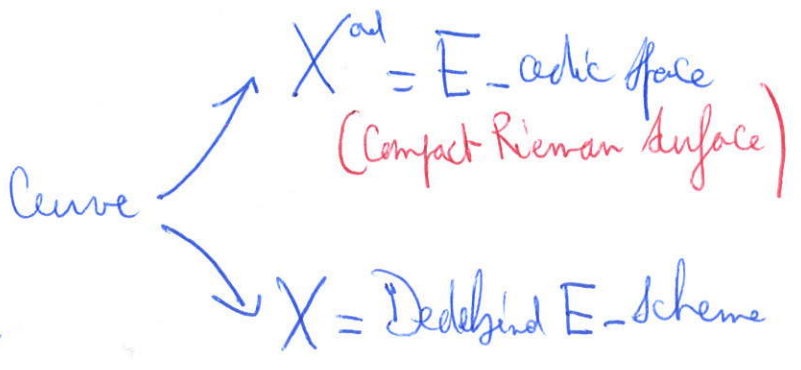 X^ad = E-adic space
(Compact Rieman surface)
Curve
X = Dedekind E-scheme